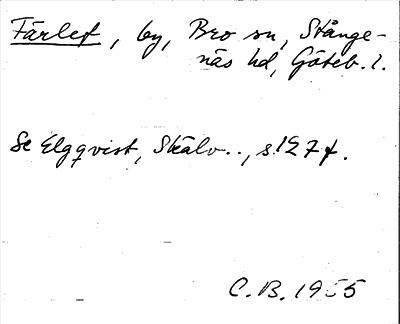 Färlef, by, Bro sn, Stånge-
näs hd, Göteb. l.
Se Elgqvist, Skälv.., s. 127 f.
C.B. 1955